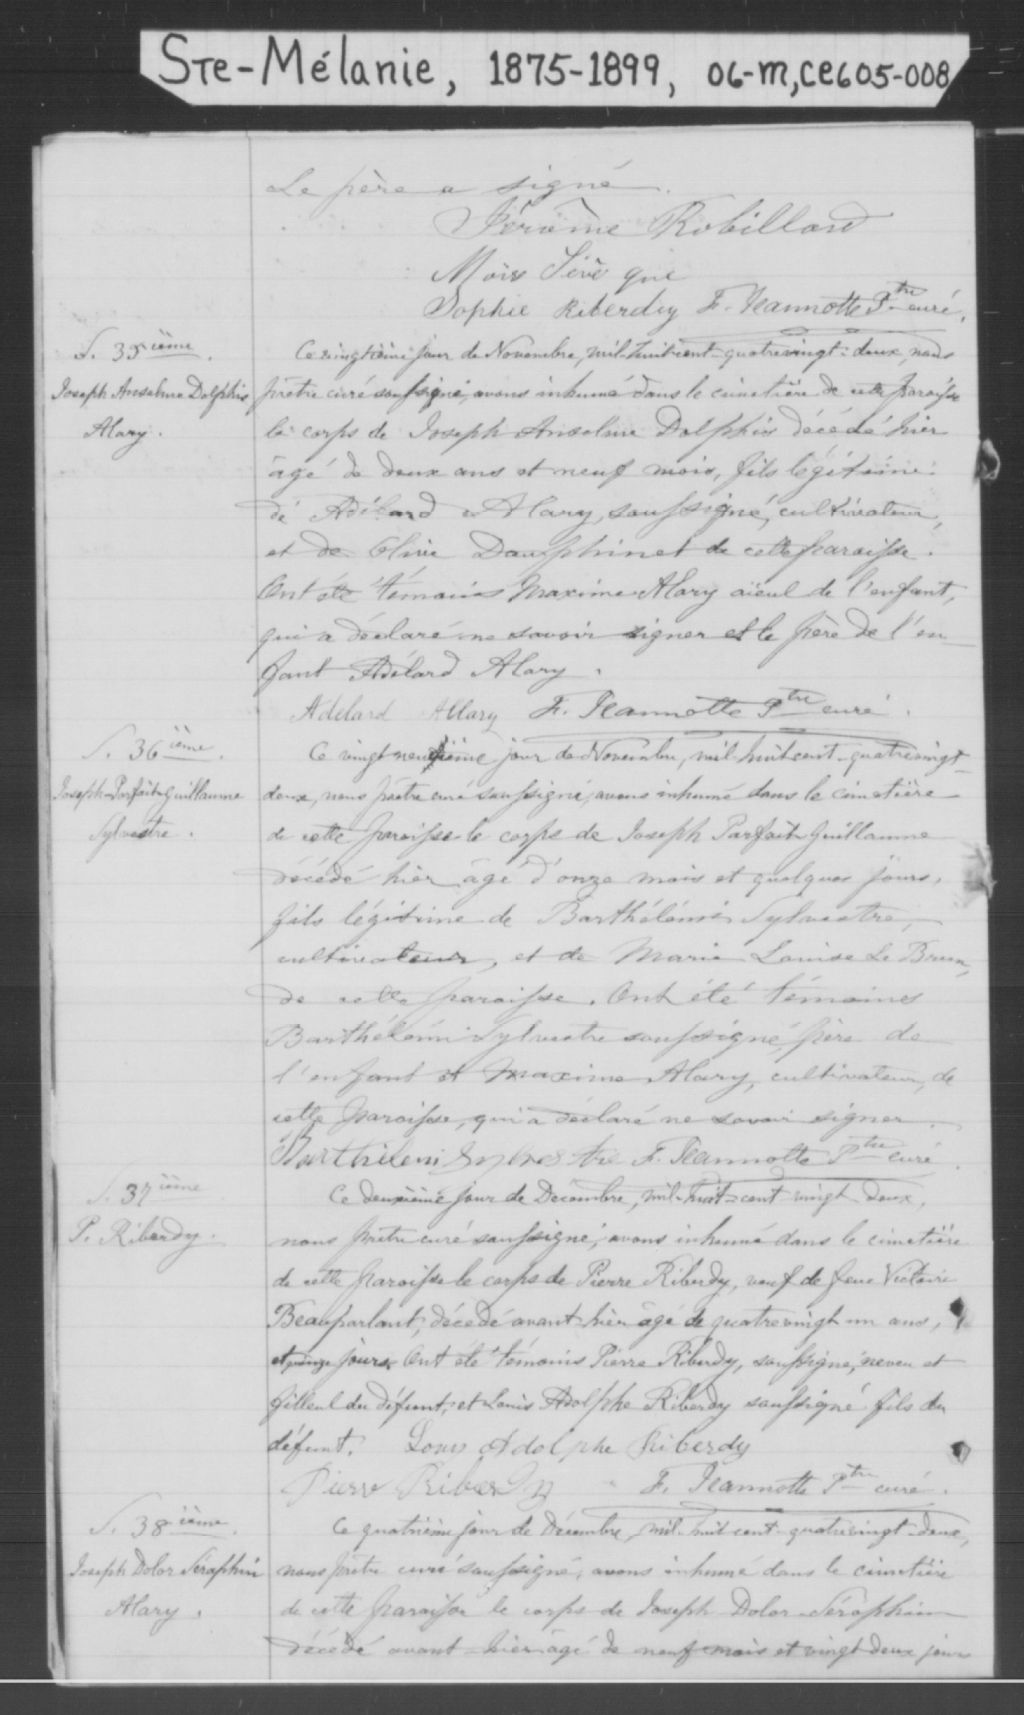 Ste-Mélanie, 1875-1899, 06-M,CE605-008
Le père a signé.
Jérôme Robillard
Sophie Riberdy F. Jeannotte Ptre curé.
S. 35ième.
Joseph Anselme Dolphis
Alary.
Ce vingtième jour de Novembre, mil-huit-cent-quatrevingt-deux, nous
prêtre curé soussigné, avons inhumé dans le cimetière de cette paroisse
le corps de Joseph Anselme Dolphis décédé hier
âgé de deux ans et neuf mois, fils légitime
de Adélard Alary, soussigné, cultivateur,
et de Olive Dauphinet de cette paroisse.
Ont été témoins Maxime Alary aïeul de l'enfant,
qui a déclaré ne savoir signer et le père de l'en
fant Adélard Alary.
Adelard Allary F. Jeannotte Ptre curé.
S. 36ième.
Joseph-Parfait-Guillaume
Sylvestre.
Ce vingt neuvième jour de Novembre, mil-huit-cent-quatrevingt-
deux, nous prêtre curé soussigné, avons inhumé dans le cimetière
de cette paroisse le corps de Joseph Parfait Guillaume
décédé hier âgé d'onze mois et quelques jours,
fils légitime de Barthélémi Sylvestre,
cultivateur, et de Marie Louise Le Brun,
de cette paroisse. Ont été témoins
Barthélémi Sylvestre soussigné, père de
l'enfant et Maxime Alary, cultivateur, de
cette paroisse, qui a déclaré ne savoir signer.
Barthilemi Sylvestre F. Jeannotte Ptre curé.
S. 37ième
P. Riberdy.
Ce deuxième jour de Décembre, mil-huit-cent-vingt deux,
nous prêtre curé soussigné, avons inhumé dans le cimetière
de cette paroisse le corps de Pierre Riberdy, veuf de feue Victoire
Beauparlant, décédé avant-hier âgé de quatrevingt un ans,
et quinze jours. Ont été témoins Pierre Riberdy, soussigné, neveu et
filleul du défunt, et Louis Adolphe Riberdy soussigné fils du
défunt. Louis Adolphe Riberdy
Pierre Riberdy F. Jeannotte Ptre curé.
S. 38ième.
Joseph Dolor Séraphin
Alary.
Ce quatrième jour de Décembre, mil-huit-cent-quatrevingt-deux,
nous prêtre curé soussigné, avons inhumé dans le cimetière
de cette paroisse le corps de Joseph Dolor Séraphin
décédé avant-hier âgé de neuf mois et vingt deux jours